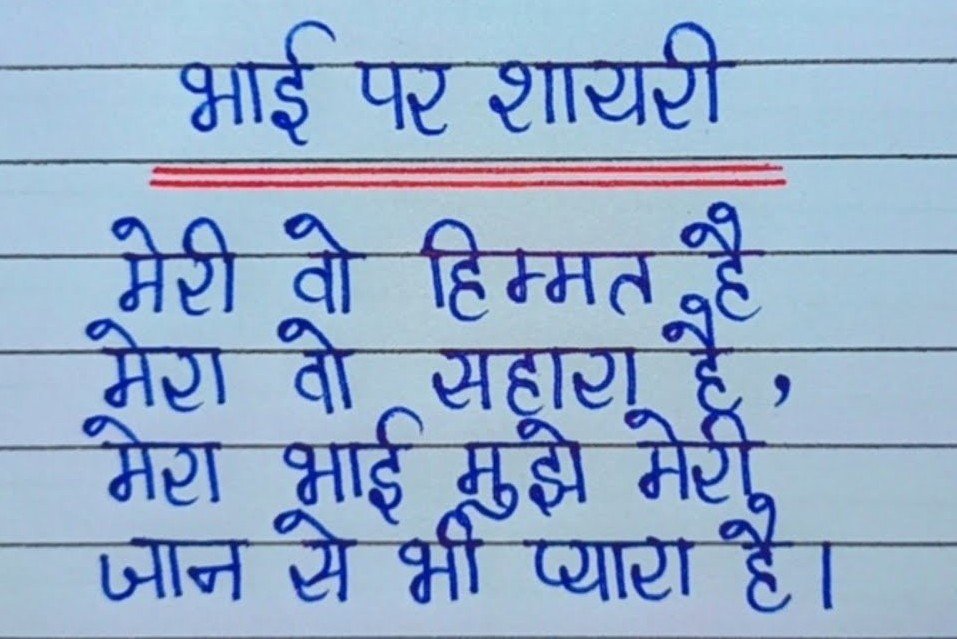 भाई पर शायरी
मेरी वो हिम्मत है
मेरा वो सहारा है,
मेरा भाई मुझे मेरी
जान से भी प्यारा है।